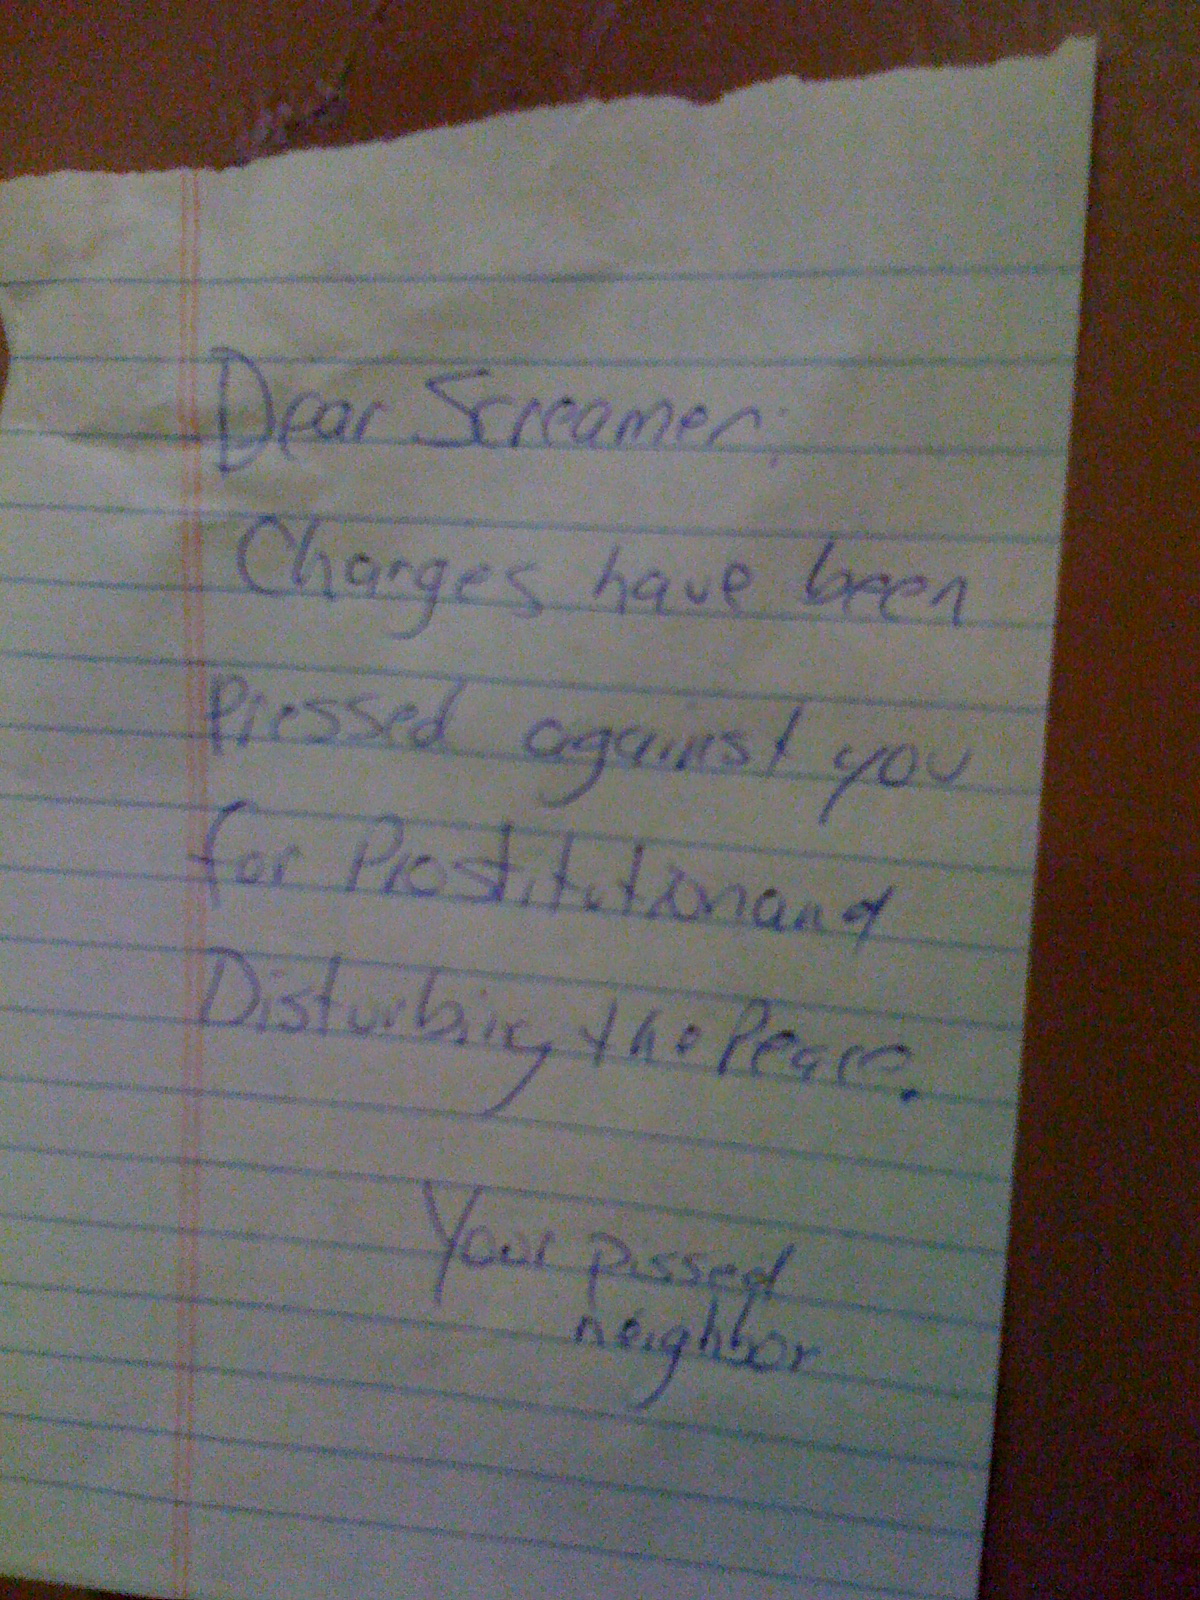 Dear Screamer:
Charges have been
Pressed against you
for Prostitution and
Disturbing the Peace.
Your pissed
neighbor